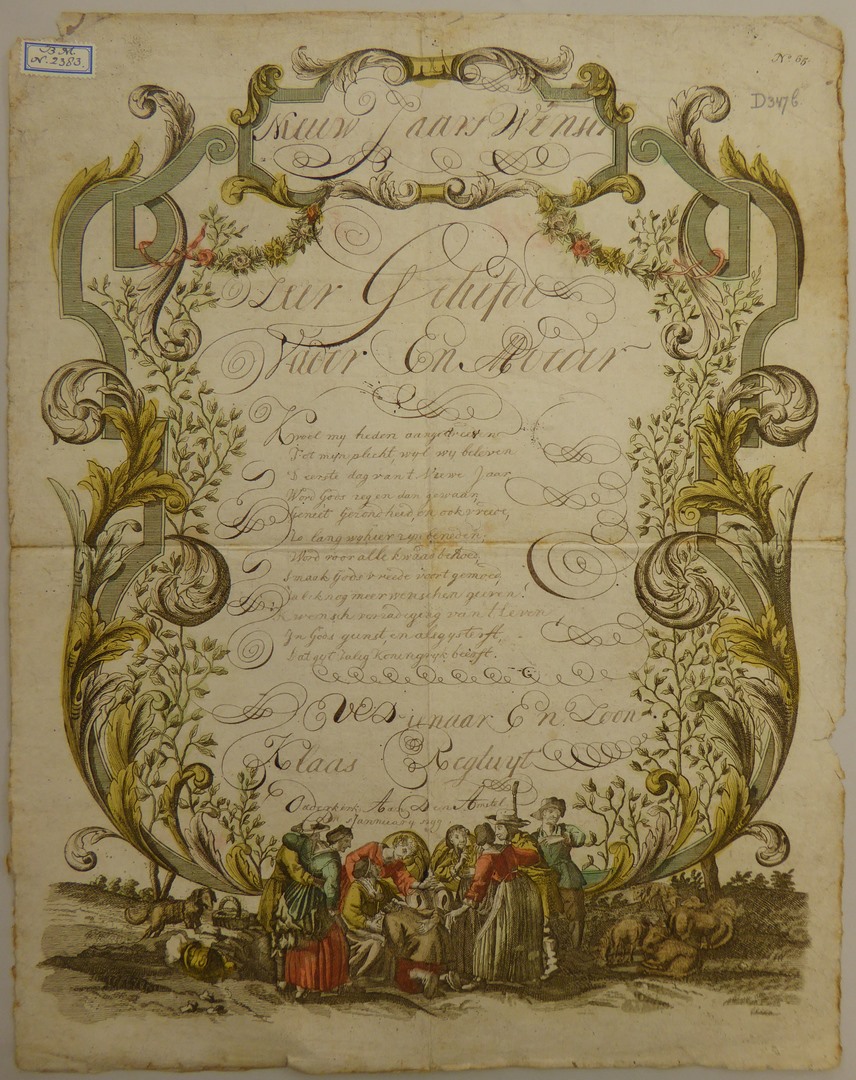 B M
N. 2383
No 65
D347b
Nieuw Jaars Wensch
Zeer Geliefde
Vader En Moeder
K voel my heden aangedreeven
Tot mijn plicht, wyl wy beleven
D eerste dag van t Niewe Jaar
Word Gods zegen dan gewaar,
Geniet Gezondheid, en ook vreede,
Zo lang wy hier zyn beneden,
Word voor alle kwaad behoed,
Smaak Gods vreede voort gemoed
Zal ik nog meer wenschen geeven!
Ik wensch voorade ging van t leven
In Gods gunst, en als gy sterft,
Dat gy t zalig Koningryk beërft.
UEDienaar En Zoon
Klaas Regtuyt
Ouderkerk Aan Den Amstel
Jannuary